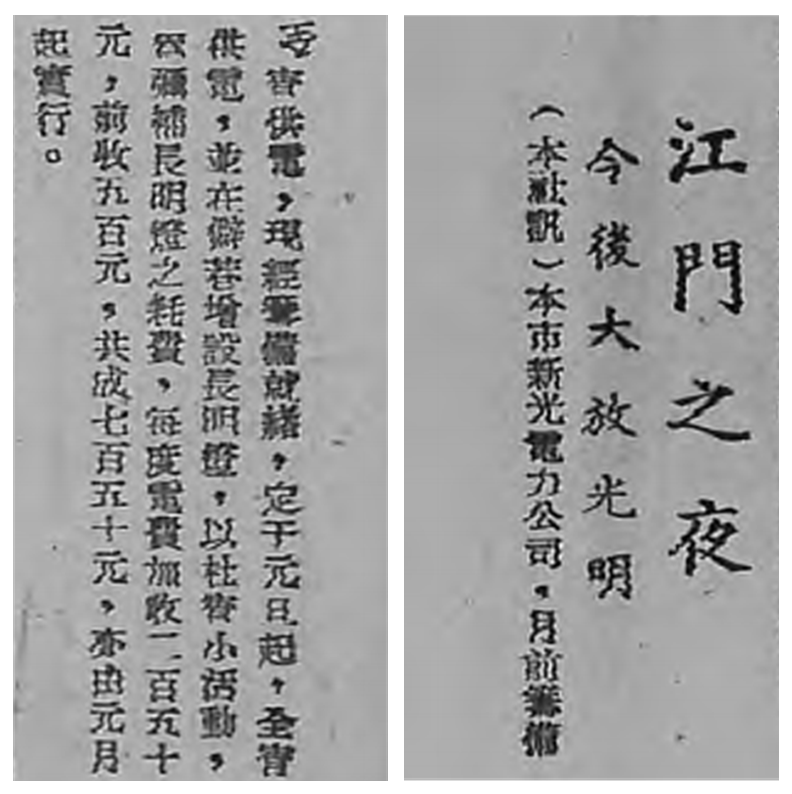 江門之夜
今後大放光明
（本社訊）本市新光電力公司，月前籌備
全宵供電，現經籌備就緒，定于元旦起，全宵
供電，並在僻巷增設長明燈，以杜宵小活動，
彌補長明燈之耗費，每度電費加收二百五十
元，前收五百元，共成七百五十元，亦由元月
起實行。